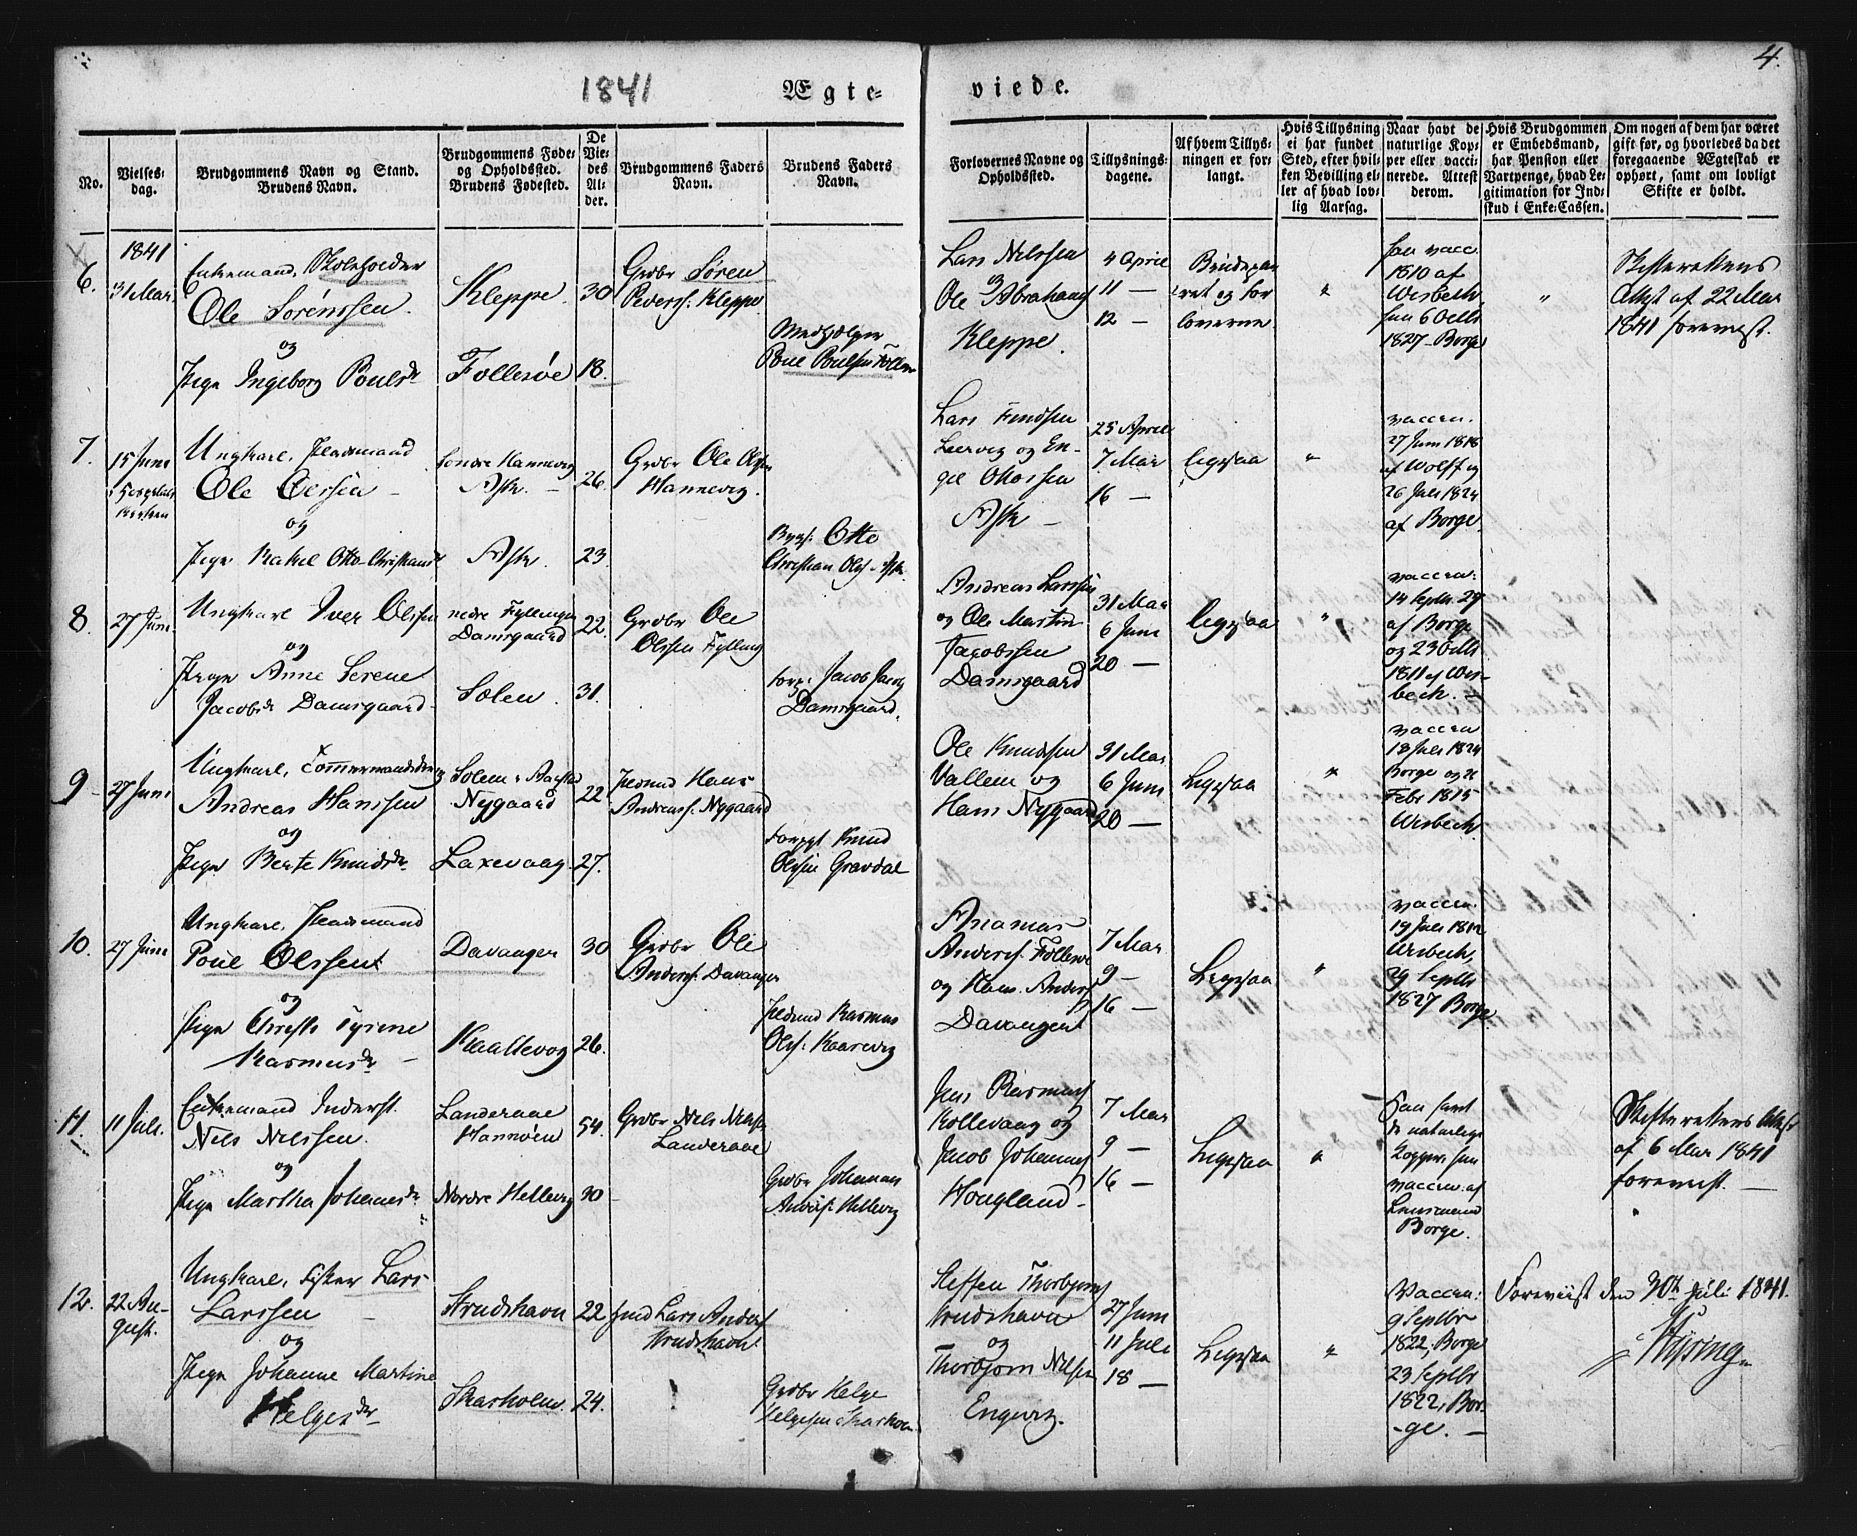 1841
Ægte-
viede.
4.
No.
Vielses-
dag.
Brudgommens Navn og Stand.
Brudens Navn.
Brudgommens Føde-
og Opholdssted.
Brudens Fødested.
De
Vie-
des
Al-
der.
Brudgommens Faders
Navn.
Brudens Faders
Navn.
Forlovernes Navne og
Opholdssted.
Tillysnings-
dagene.
Af hvem Tillys-
ningen er for-
langt.
Hvis Tillysning
ei har fundet
Sted, efter hvil-
ken Bevilling el-
ler af hvad lov-
lig Aarsag.
Naar havt de
naturlige Kop-
per eller vacci-
nerede. Attest
derom.
Hvis Brudgommen
er Embedsmand,
har Pension eller
Vartpenge, hvad Le-
gitimation for Ind-
skud i Enke-Cassen.
Om nogen af dem har været
gift før, og hvorledes da det
foregaaende Ægteskab er
ophørt, samt om lovligt
Skifte er holdt.
6.
1841
31 Mai
Enkemand, Skoleholder
Ole Sørenssen.
og
Pige Ingeborg Pouls dr
Kleppe.
Follesøe
30
18.
Grdbr Søren
Peders: Kleppe
Medhjelper
Poul Poulsen
Lars Nelssen
og
Ole Abrahams
Kleppe.
4 April
11 —
12 —
loverne.
"
vacc.
1810 af
Wesbech,
1827 Borge
"
Skifterettens
Attest af 22 Mai
1841 foreviist.
7.
15 Juni
Ungkarl,
Ole Olssen —
og
Pige Rakel Otto Christians
Søndre Hannevig
Ask. —
Ask.
26.
23.
Grdbr Ole
Hannevig.
Otto
Christian Ols: Ask.
Lars
Leervig og En-
gel Ottossen
Ask —
25 April
7 Mai
16 —
ligesaa
"
vaccin.
27 Juni 1818
af Wolff og
26 Juli 1824
af Borge
8.
27 Juni
Ungkarl Iver Olssen
og
Pige Anne Serene
Jacobs dr Damsgaard
nedre Fyllingen
Damsgaard
Solen.
22.
31.
Grdbr Ole
Olssen Fylling
Jacob
Damsgaard.
Andreas Larssen
og Ole Martin
Jacobssen
Damsgaard
31 Mai
6 Juni
20 —
ligesaa
"
vaccin.
14 Septbr 29
af Borge
og 23 Octbr
1811 af Wes-
bech. —
9
27 Juni
Ungkarl,
Andreas Hanssen
og
Pige Berte Knuds dr
Nygaard
Laxevaag
22
27.
Hans
Andreass: Nygaard
Knud
Olssen Gravdal
Ole Knudssen
Vallem og
Hans Nygaard
31 Mai
6 Juni
20 —
Ligesaa
"
vaccin
18 Juli 1824
Borge og
Febr 1815
Wesbech.
10.
27 Juni
Ungkarl,
Poul Olssen
og
Pige Christi Tyrine
Rasmus dr —
Davanger
Kaaltevog
30
26.
Grdbr Ole
Anders: Davanger
Rasmus
Ols:
Anders: Follesøe
og Hans Anders
Davanger
7 Mai
9 —
16 —
Ligesaa
"
vaccin.
19 Juli 1812
Wesbech,
29 Septbr
1827 Borge
11.
11 Juli.
Enkemand Inderst.
Nels Nelssen.
og
Pige Martha Johannes dr
Landeraae
Hannøen
Nordre Hellevig
54.
30
Grdbr Nels Nelssen
Landeraae
Grdbr Johannes
Anders: Hellevig
Jens Rasmus
Kollevaag og
Jacob Johannes
Hougland
7 Mai
9 —
16 —
Ligesaa
"
de naturlige
Kopper, hun
vaccin. af
Lensmand
Borge.
Skifterettens Attest
af 6 Mai 1841
foreviist. —
12.
22 Au-
gust.
Ungkarl, Fisker Lars
Larssen —
og
Pige Johanne Martine
Helges dr
Strudshavn
Skarholm.
22
24.
Lars Anders
Strudshavn
Grdbr Helge
Helgesen Skarholm
Steffen Thorbjørns
Strudshavn
og
Thorbjørn Nelssen
Engevig.
27 Juni
11 Juli
18 —
Ligesaa
"
Vaccin:
9 Septbr
1822, Borge
23 Septbr
1822, Bor-
-ge. —
Foreviist den 30te Juli 1841.